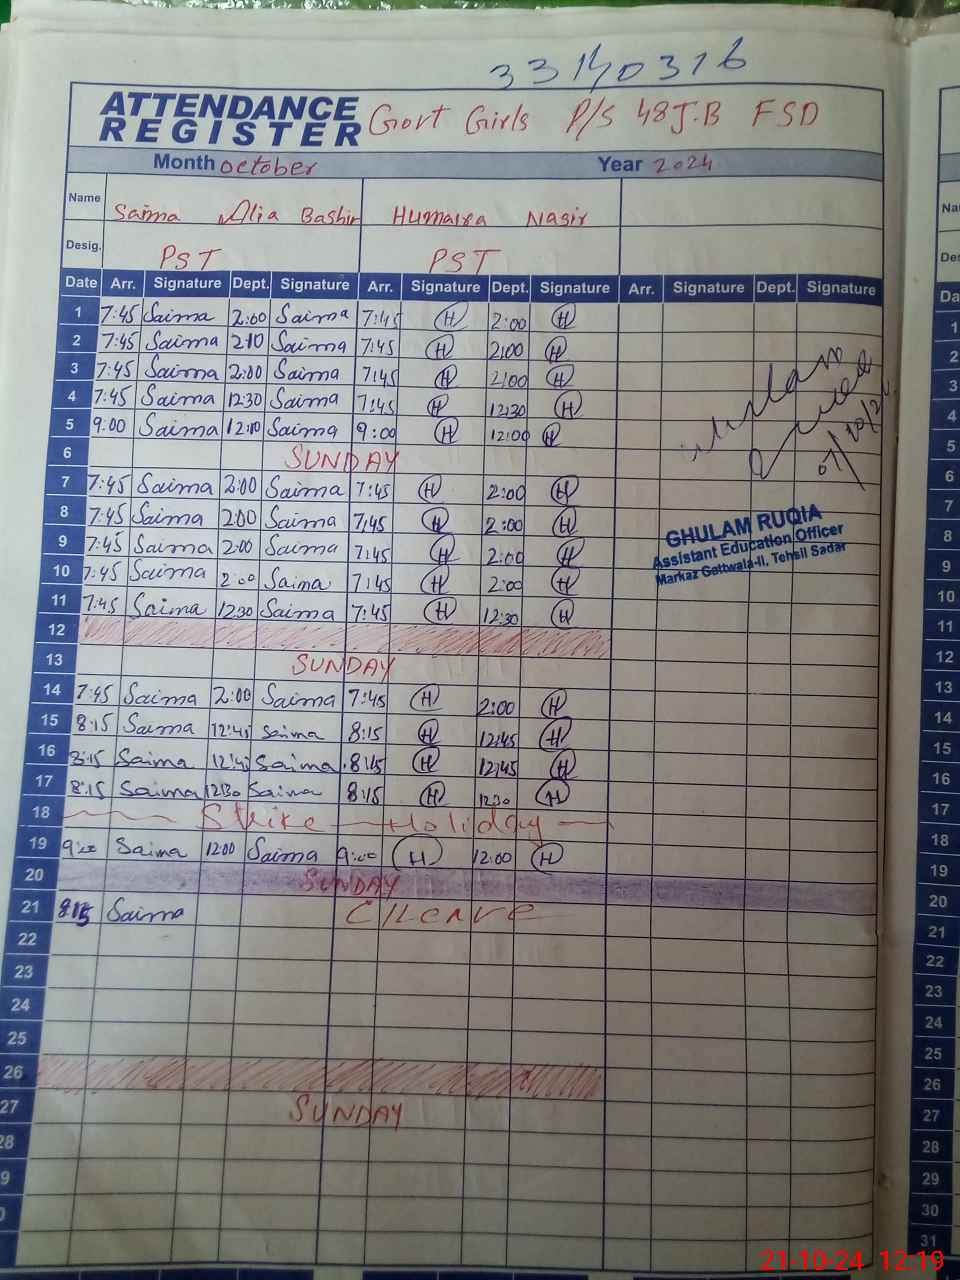 33140316
ATTENDANCE REGISTER Govt Girls P/S 48J.B FSD
Month October Year 2024
Name Saima Alia Bashir Humaira Nasir
Desig. PST PST
Date Arr. Signature Dept. Signature Arr. Signature Dept. Signature Arr. Signature Dept. Signature
1 7:45 Saima 2:00 Saima 7:45 H 2:00 H
2 7:45 Saima 2:10 Saima 7:45 H 2:00 H
3 7:45 Saima 2:00 Saima 7:45 H 2:00 H
4 7:45 Saima 12:30 Saima 7:45 H 12:30 H
5 9:00 Saima 12:10 Saima 9:00 H 12:00 H
6 SUNDAY
7 7:45 Saima 2:00 Saima 7:45 H 2:00 H
8 7:45 Saima 2:00 Saima 7:45 H 2:00 H
9 7:45 Saima 2:00 Saima 7:45 H 2:00 H
10 7:45 Saima 2:00 Saima 7:45 H 2:00 H
11 7:45 Saima 12:30 Saima 7:45 H 12:30 H
12
13 SUNDAY
14 7:45 Saima 2:00 Saima 7:45 H 2:00 H
15 8:15 Saima 12:45 Saima 8:15 H 12:45 H
16 8:15 Saima 12:45 Saima 8:15 H 12:45 H
17 8:15 Saima 12:30 Saima 8:15 H 12:30 H
18 Strike Holiday
19 9:00 Saima 12:00 Saima 9:00 H 12:00 H
20 SUNDAY
21 8:15 Saima C/Leave
22
23
24
25
26
27 SUNDAY
28
9
0
GHULAM RUQIA
Assistant Education Officer
Markaz Gattwala-II, Tehsil Sadar
Na
Des
Da
1
2
3
4
5
6
7
8
9
10
11
12
13
14
15
16
17
18
19
20
21
22
23
24
25
26
27
28
29
30
31
21-10-24 12:19